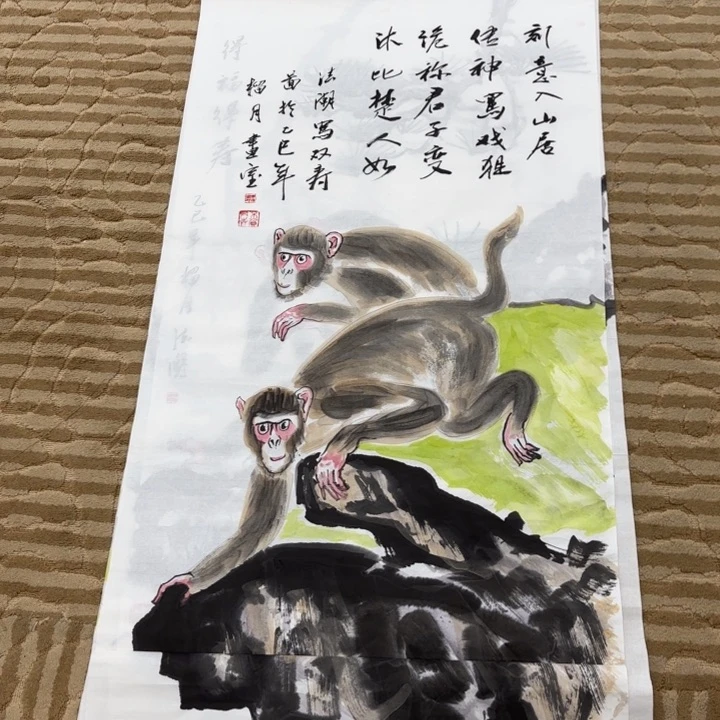 刻意入山居
传神写戏狂
诡称君子变
沐比楚人如
法湖写双寿
图于乙巳年
榴月画室
得福得寿
乙巳年榴月法湖